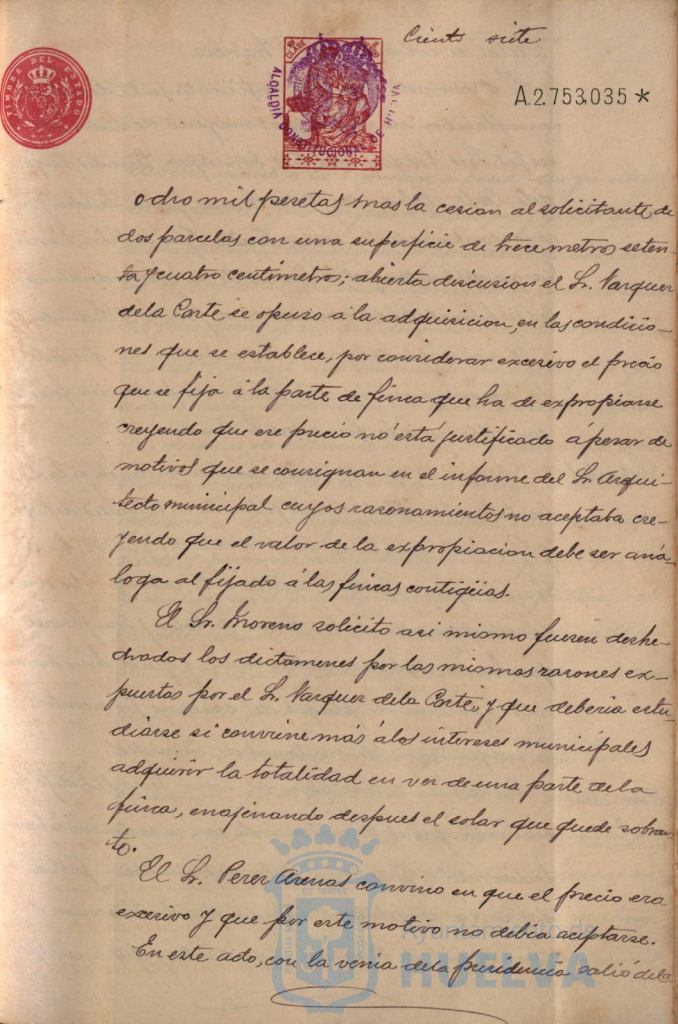 Ciento siete
TIMBRE DEL ESTADO
CLASE
ALCALDIA CONSTITUCIONAL DE HUELVA
A.2.753.035 *
ocho mil pesetas mas la cesion al solicitante, de
dos parcelas con una superficie de trece metros seten-
ta y cuatro centimetros; abierta discusion el Sr. Vazquez
de la Corte se opuso á la adquisicion, en las condicio-
nes que se establece, por considerar excesivo el precio
que se fija á la parte de finca que ha de expropiarse
creyendo que ese precio no está justificado á pesar de
motivos que se consignan en el informe del Sr. Arqui-
tecto municipal cuyos razonamientos no aceptaba cre-
yendo que el valor de la expropiacion debe ser aná-
loga al fijado á las fincas contigüas.
El Sr. Moreno solicitó asi mismo fuesen deshe-
chados los dictamenes por las mismas razones ex-
puestas por el Sr. Vazquez de la Corte, y que deberia estu-
diarse si convine más á los intereses municipales
adquirir la totalidad en vez de una parte de la
finca, enajenando despues el solar que quede sobran-
te.
El Sr. Perez Arenas convino en que el precio era
excesivo y que por este motivo no debia aceptarse.
En este acto, con la venia de la presidencia salió de la
Ayuntamiento de
HUELVA